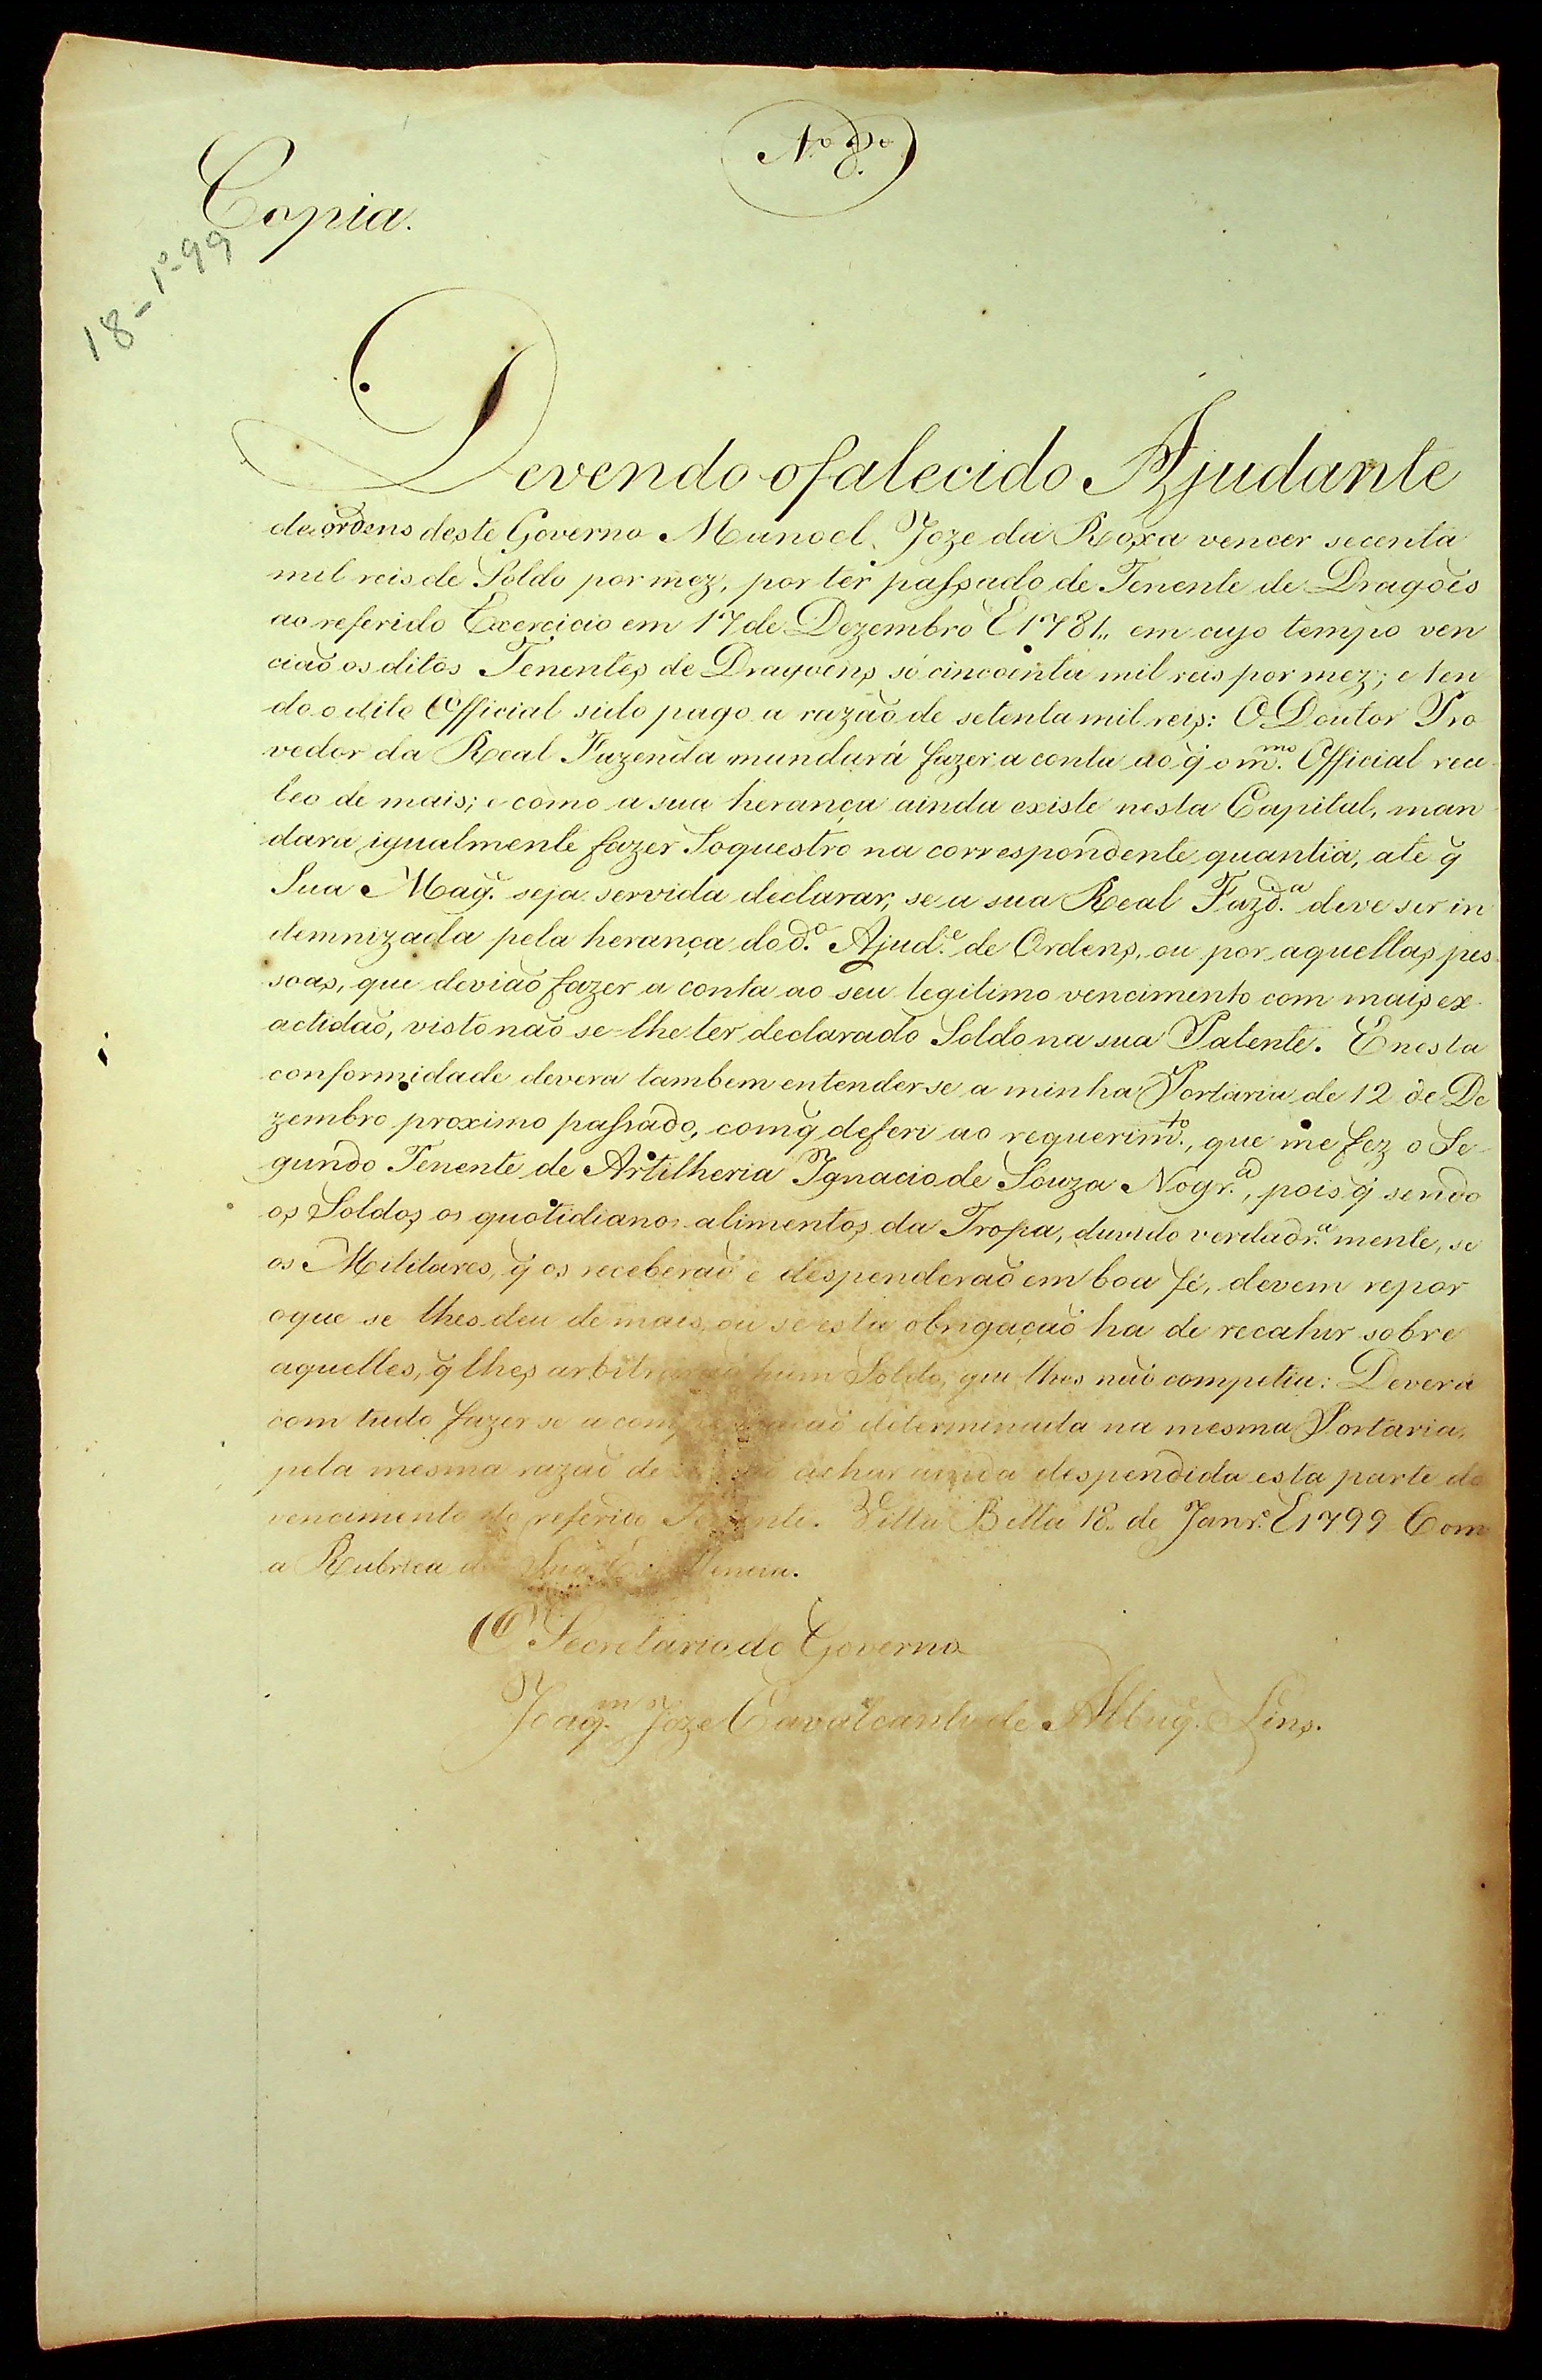 N.º 8.º
Copia.
18-1º-99
Devendo o falecido Ajudante
de ordens deste Governo Manoel Joze da Roxa vencer secenta
mil reis de Soldo por mez, por ter passado de Tenente de Dragões
ao referido Exercicio em 17 de Dezembro E 1781,, em cujo tempo ven
cião os ditos Tenentes de Dragoens só cincoenta mil reis por mez; e ten
do o dito Official sido pago a razão de setenta mil reis: O Doutor Pro
vedor da Real Fazenda mandará fazer a conta ao q̃ o m.mo Official rece
beo de mais; e como a sua herança ainda existe nesta Capital, man
dara igualmente fazer Soquestro na correspondente quantia, ate q̃
Sua Mag̃. seja servida declarar, se a sua Real Fazd.a deve ser in
demnizada pela herança do d.o Ajud.e de Ordens, ou por aquellas pes
soas, que devião fazer a conta ao seu legitimo vencimento com mais ex
actidão, visto não se lhe ter declarado Soldo na sua Patente. E nesta
conformidade devera tambem entenderse a minha Portaria de 12 de De
zembro proximo passado, com q̃ deferi ao requerim.to, que me fez o Se-
gundo Tenente de Artilheria Ignacio de Souza Nogr.a, pois q̃ sendo
os Soldos os quotidianos alimentos da Tropa, duvido verdadr.a mente, se
os Militares, q̃ os receberaõ e despenderaõ em boa fé, devem repor
o que se lhes deu de mais, ou se esta obrigaçaõ ha de recahir sobre
aquelles, q̃ lhes arbitraraõ hum Soldo, que lhes não competia: Deverá
com tudo fazer se a determinada na mesma Portaria,
pela mesma razaõ de achar ainda despendida esta parte do
vencimento do referido Tenente. Villa Bella 18,, de Janr.o E 1799 Com
a Rubrica de Sua Excellencia.
O Secretario do Governo
Joaq.m Joze Cavalcanti de Albuq.e Lins.